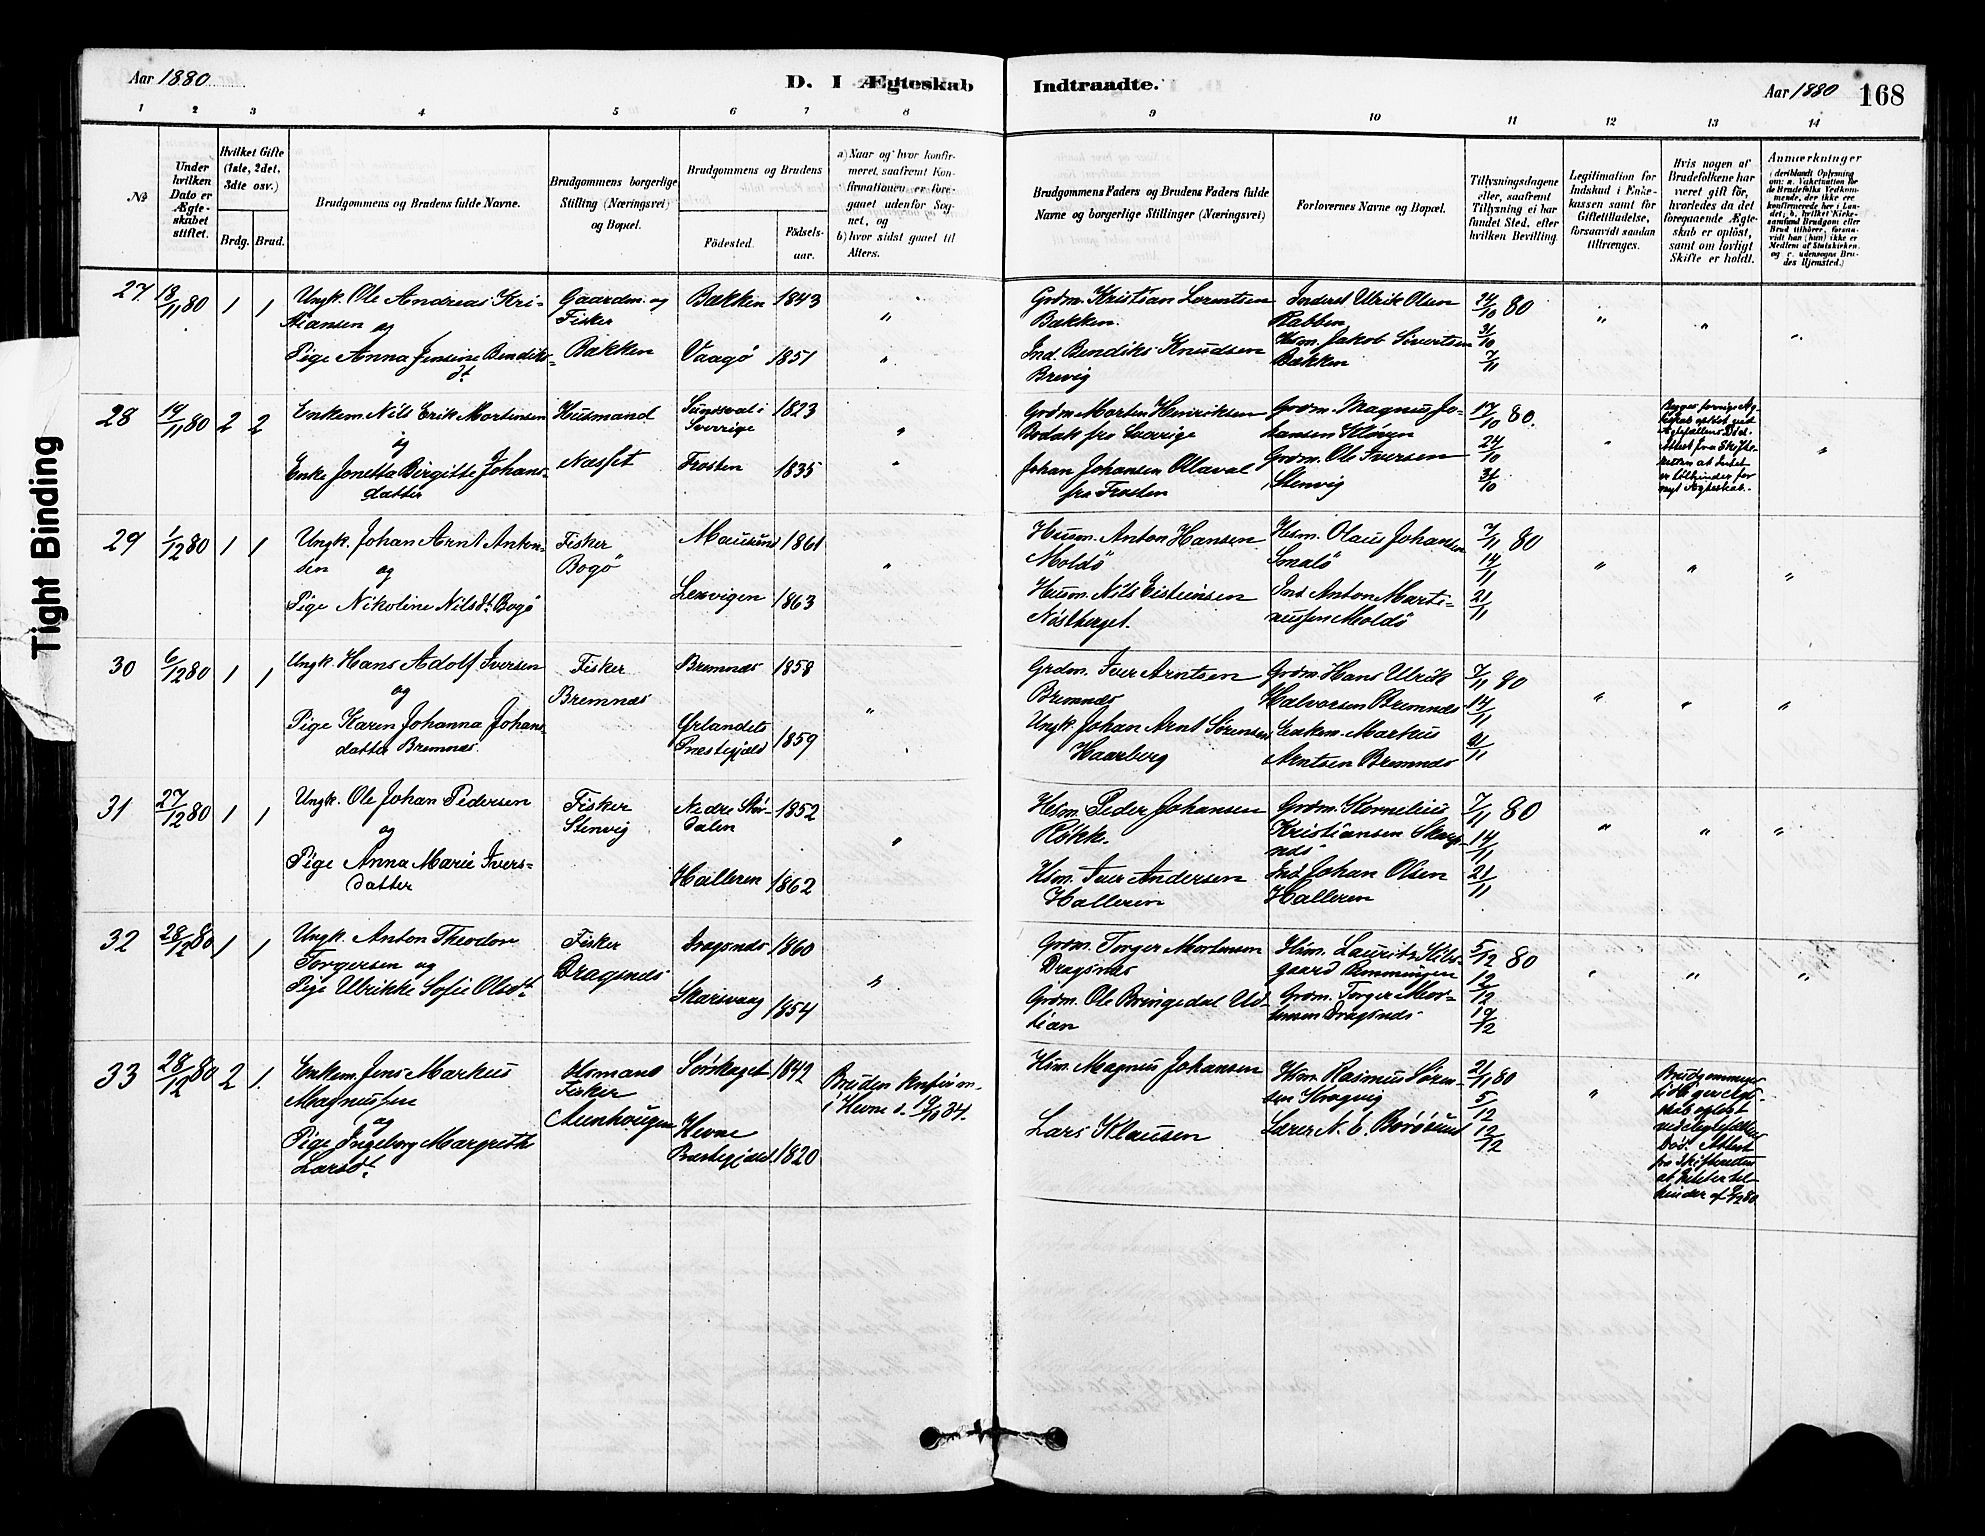 Aar 1880
D. I Ægteskab Indtraadte.
Aar 1880 168
1 2 3 4 5 6 7 8 9 10 11 12 13 14
№
Under hvilken Dato er Ægteskabet stiftet.
Hvilket Gifte (1ste, 2det, 3dte osv.)
Brdg. Brud.
Brudgommens og Brudens fulde Navne.
Brudgommens borgerlige Stilling (Næringsvei) og Bopæl.
Brudgommens og Brudens
Födested. Födsels-aar.
a) Naar og hvor konfirmeret, saafremt Konfirmationen er foregaaet udenfor Sognet, og
b) hvor sidst gaaet til Alters.
Brudgommens Faders og Brudens Faders fulde Navne og borgerlige Stillinger (Næringsvei)
Forlovernes Navne og Bopæl.
Tillysningsdagene eller, saafremt Tillysning ei har fundet Sted, efter hvilken Bevilling.
Legitimation for Indskud i Enkekassen samt for Giftetilladelse, forsaavidt saadan tiltrænges.
Hvis nogen af Brudefolkene har været gift för, hvorledes da det foregaaende Ægteskab er oplöst, samt om lovligt Skifte er holdt.
Anmærkninger
(deriblandt Oplysning om: a. Vakcination for de Brudefolks Vedkommende, der ikke ere konfirmerede her i Landet; b. hvilket Kirkesamfund Brudgom eller Brud tilhörer, forsaavidt han (hun) ikke er Medlem af Statskirken, og c. udensogns Brudes Hjemsted.)
27 18/11 80 1 1
Ungk. Ole Andreas Kri-
stiansen og
Pige Anna Jensine Bendiks-
dt
Gaardm. og
Fisker
Bækken
Bækken 1843
Vaagö 1851
" "
Grdm. Kristian Lorentsen
Bækken.
Ind. Bendiks Knudsen
Brevig
Inderst Ulrik Olsen
Rabben
Hsm. Jakob Sivertsen
Bækken
24/10 80
31/10
7/11
" " "
28 14/11 80 2 2
Enkem. Nils Erik Mortensen
og
Enke Jonetta Birgitte Johans-
datter
Husmand
Næsset
Sundsval i
Sverrige 1823
Frosten 1835
" "
Grdm Morten Henriksen
Bodak fra Sverige
Johan Johansen Ollaval
fra Frosten
Grdm. Magnus Jo-
hansen Klöven
Grdm. Ole Iversen
Stenvig
17/10 80.
24/10
31/10
"
Begges forrige Æg-
teskab oplöst ved
Ægtefællens Död.
Attest fra Skifte-
retten at Intet
er til Hinder for
nyt Ægteskab.
"
29 1/12 80 1 1
Ungk. Johan Arnt Anton-
sen og
Pige Nikoline Nilsdt. Bogö
Fisker
Bogö
Mausund 1861
Lexvigen 1863
"
Husm. Anton Hansen
Moldö
Husm. Nils Eistensen
Nöstberget.
Hsm. Olaus Johansen
Smalö
Ind Anton Marti-
nussen Moldö
7/11 80
14/11
21/11
" " "
30 6/12 80 1 1
Ungk. Hans Adolf Iversen
og
Pige Karen Johanna Johans-
datter Bremnæs.
Fisker
Bremnæs
Bremnæs 1858
Ørlandets
Præstegjæld 1859
"
Grdm. Iver Arntsen
Bremnæs
Ungk. Johan Arnt Sörensen
Haarberg
Grdm. Hans Ulrik
Halvorsen Bremnæs
Enkem. Markus
Arntsen Bremnæs
7/11 80
14/11
21/11
" " "
31 27/12 80 1 1
Ungk. Ole Johan Pedersen
og
Pige Anna Marie Ivers-
datter
Fisker
Stenvig
Nedre Stör-
dalen 1852
Halleren 1862
"
Hsm. Peder Johansen
Rökke.
Hsm. Iver Andersen
Halleren
Grdm. Kornelius
Kristiansen Skarp-
næs
Ind Johan Olsen
Halleren
7/11 80
14/11
21/11
" " "
32 28/12 80 1 1
Ungk. Anton Theodor
Torgersen og
Pige Ulrikke Sofie Olsdt.
Fisker
Dragsnæs
Dragsnæs 1860
Skarsvaag 1854
"
Grdm. Torger Mortensen
Dragsnæs
Grdm. Ole Bringedal Ud-
tian
Hsm. Lauritz Kils-
gaard Bemmingen
Grdm. Torger Mor-
tensen Dragsnæs
5/12 80
12/12
19/12
" " "
33 28/12 80 2 1.
Enkem. Jens Markus
Magnussen
og
Pige Ingeborg Margreth
Larsdt.
Hsmand
Fisker
Aunhougen
Sörskaget 1842
Hevne
Præstegjæld 1820
Bruden konfirm.
i Hevne d. 19/10 34.
Hsm. Magnus Johansen
Lars Klausen
Hsm. Rasmus Sören-
sen Kragvig
Lærer N. C. Börösund
21/11 80
5/12
12/12
"
Brudgommens
tidligere Ægte-
skab oplöst
ved Ægtefælles
Död. Attest
fra Skifteretten
at Intet er til
hinder af 9/12 80.
Tight Binding